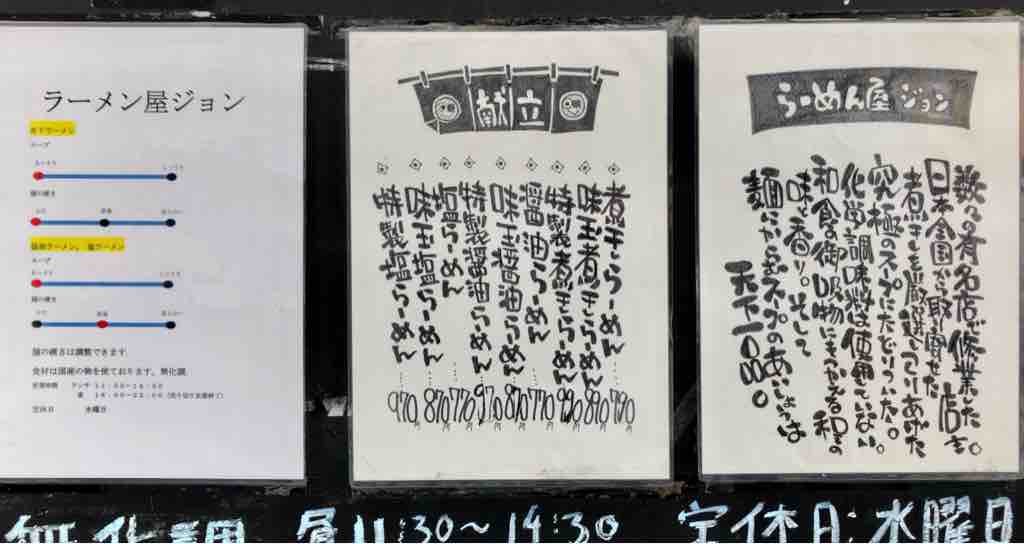 ラーメン屋ジョン
煮干ラーメン
スープ
あっさり
こってり
麺の硬さ
醤油ラーメン、塩ラーメン
スープ
麺の硬さ
麺の硬さは調整できます。
食材は国産の物を使ております。無化調
営業時間 ランチ 11:30~14:30
定休日 水曜日
献立
煮干らーめん 790円
味玉煮干らーめん 890円
特製煮干らーめん 990円
醤油らーめん 770円
味玉醤油らーめん 870円
特製醤油らーめん 970円
塩らーめん 770円
味玉塩らーめん 870円
特製塩らーめん 970円
らーめん屋 ジョン
数々の有名店で修業した。店主
日本全国から取り寄せた
煮干しを厳選してつくりあげた
究極のスープにたどりついた。
化学調味料は使用していない
和食の御吸物にもつかえる和の
味と香り。そして
麺にからむスープのあいしょうは
天下一品。
無化調 昼11:30~14:30 定休日:水曜日